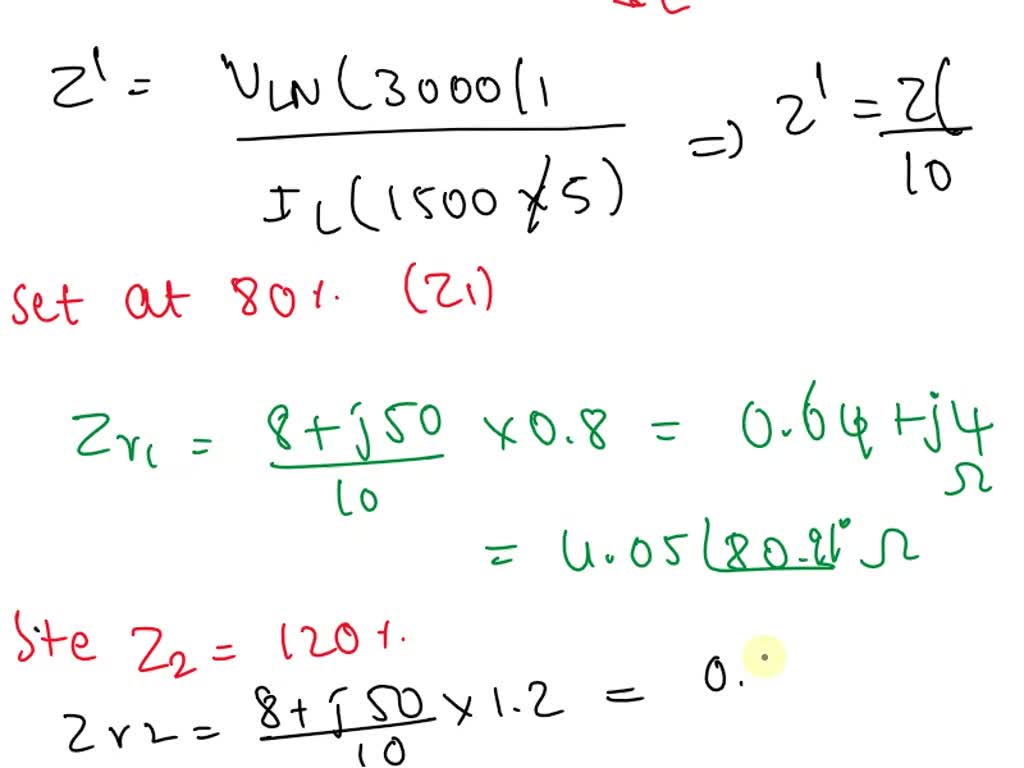 Z' = VLN(3000(1 / IL(1500/5) => Z' = Z( / 10
set at 80%. (Z1)
Zr1 = 8+j50 / 10 × 0.8 = 0.64 + j4 Ω
= 4.05∠80.9° Ω
Ste Z2 = 120%.
Zr2 = 8+j50 / 10 × 1.2 = 0.